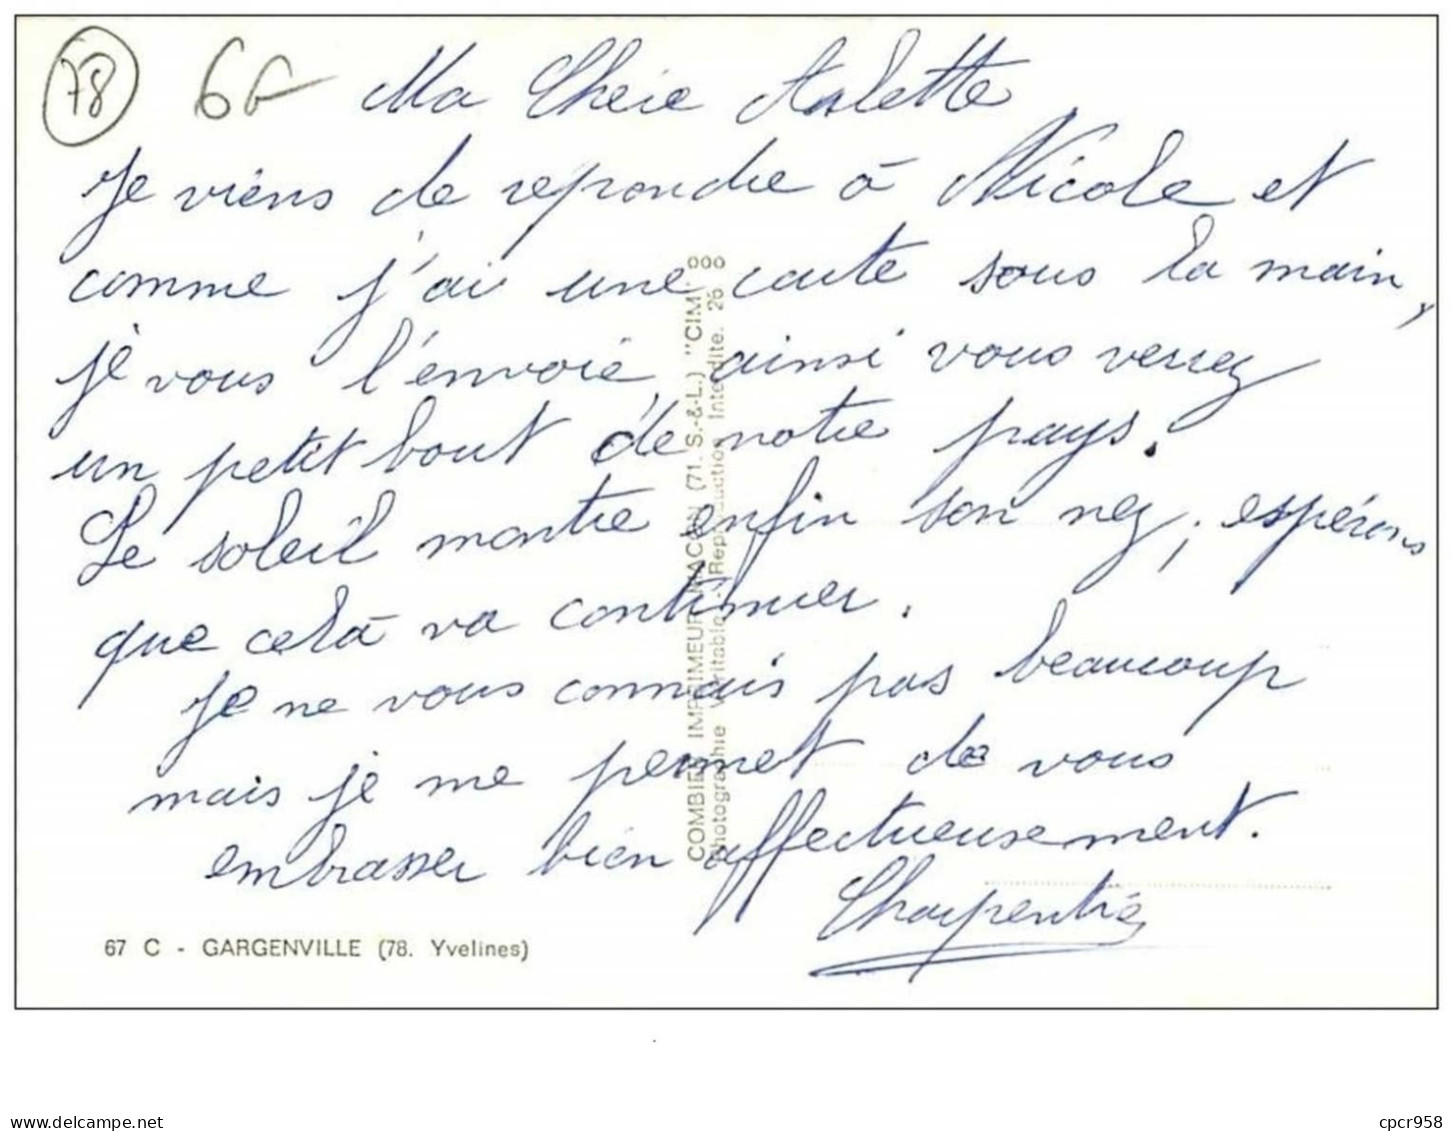 78 6F Ma Chère Arlette
Je viens de repondre à Nicole et
comme j'ai une carte sous la main,
je vous l'envoie, ainsi vous verrez
un petit bout de notre pays.
Le soleil montre enfin son nez, espérons
que celà va continuer.
Je ne vous connais pas beaucoup
mais je me permet de vous
embrasser bien affectueusement.
Charpentié
COMBIER IMPRIMEUR MACON (71. S.-&-L.) "CIM"
Photographie Véritable - Reproduction Interdite. 26
67 C - GARGENVILLE (78. Yvelines)
delcampe.net
cpcr958